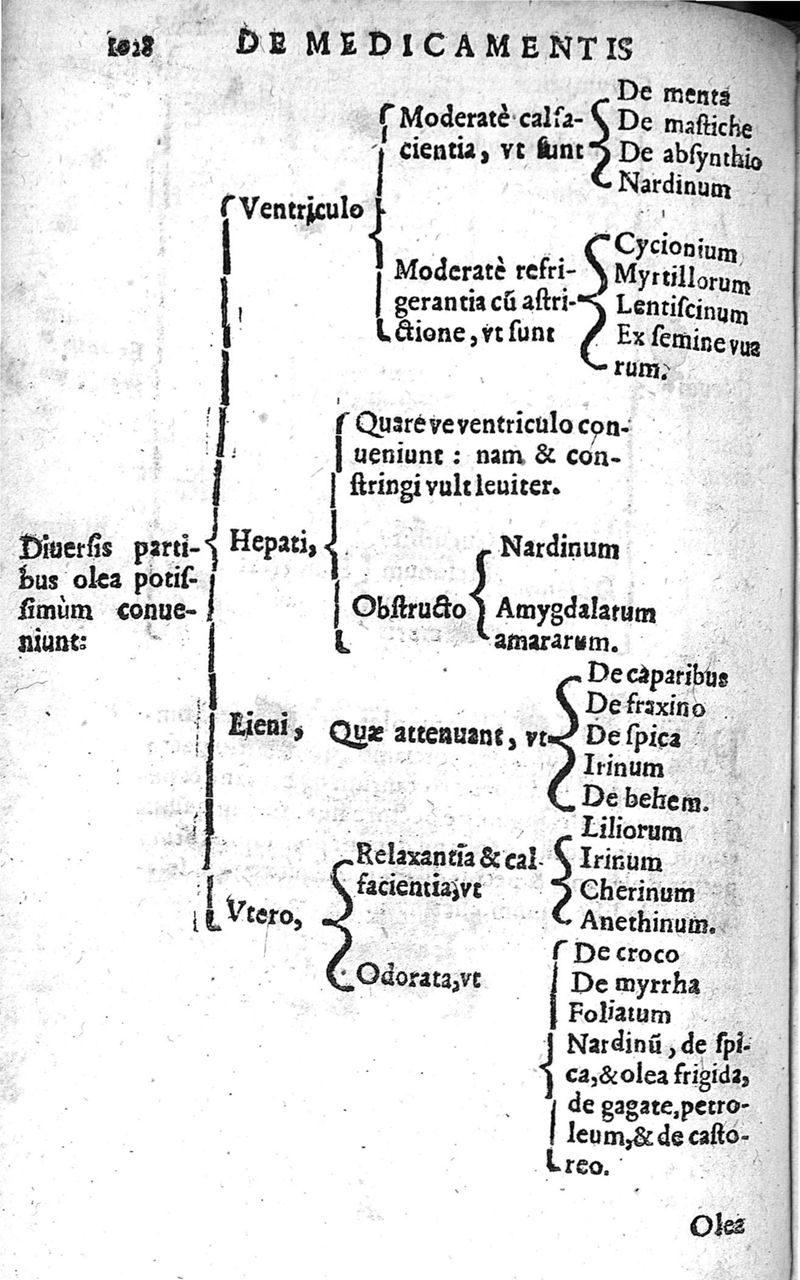 1028 DE MEDICAMENTIS
Diuersis parti-
bus olea potis-
simùm conue-
niunt:
Ventriculo
Moderatè calfa-
cientia, vt sunt
De menta
De mastiche
De absynthio
Nardinum
Moderatè refri-
gerantia cũ astri-
ctione, vt sunt
Cycionium
Myrtillorum
Lentiscinum
Ex semine vua
rum.
Hepati,
Quare ve ventriculo con-
ueniunt : nam & con-
stringi vult leuiter.
Obstructo
Nardinum
Amygdalarum
amararum.
Lieni,
Quæ attenuant, vt
De caparibus
De fraxino
De spica
Irinum
De behem.
Vtero,
Relaxantia & cal-
facientia, vt
Liliorum
Irinum
Cherinum
Anethinum.
Odorata, vt
De croco
De myrrha
Foliatum
Nardinũ, de spi-
ca, & olea frigida,
de gagate, petro-
leum, & de casto-
reo.
Olea